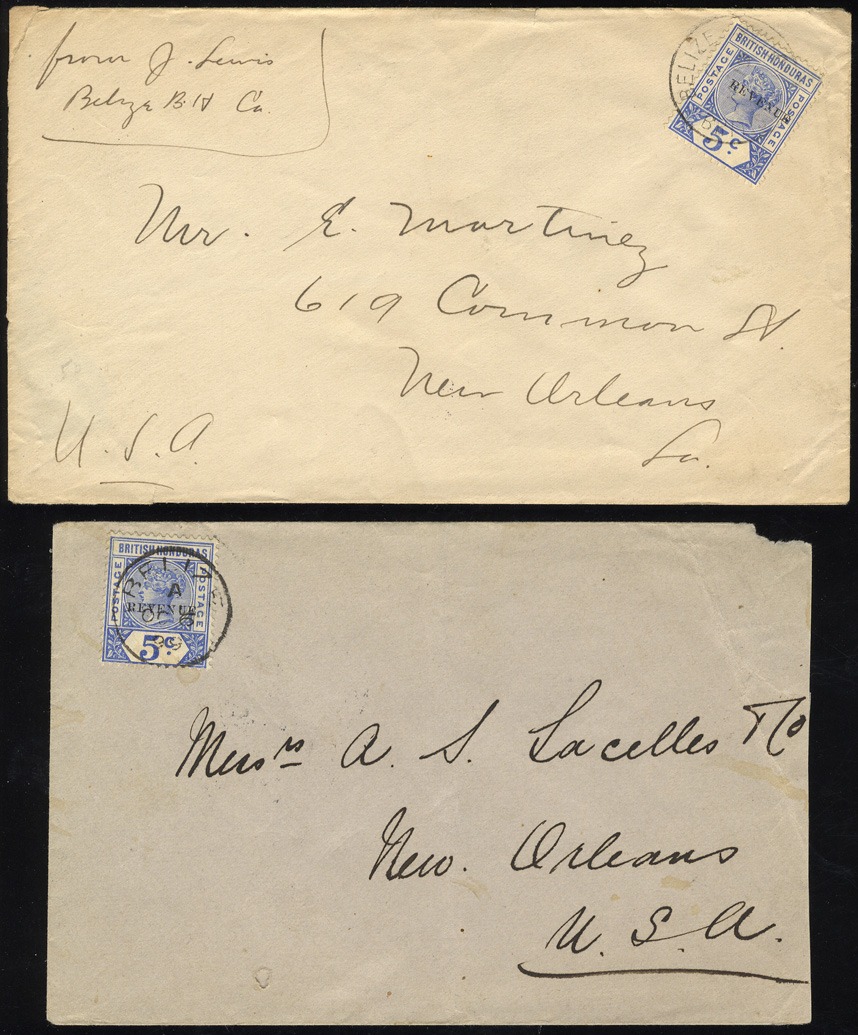 from J. Lewis
Belize B. H Ca.
BELIZE
BRITISH HONDURAS
POSTAGE
POSTAGE
REVENUE
5c
Mr. E. Martinez
619 Common St.
New Orleans
La.
U. S. A.
BRITISH HONDURAS
POSTAGE
POSTAGE
REVENUE
5c
BELIZE
A
OC
99
Messrs A. S. Lacelles
New. Orleans
U. S. A.